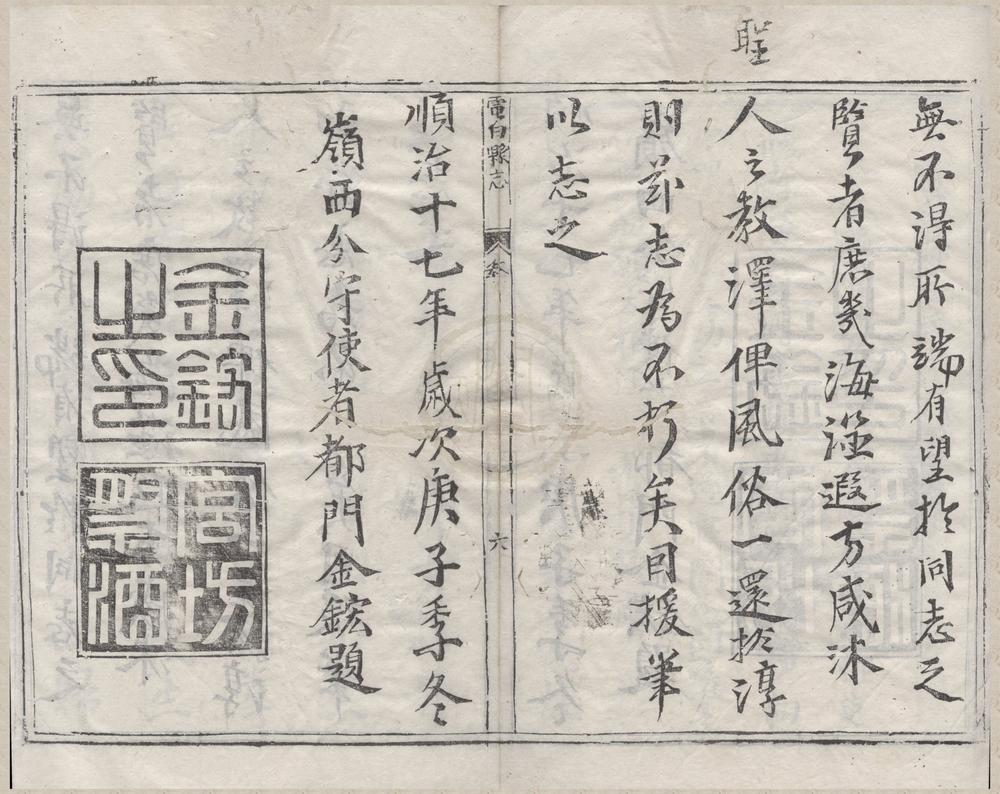 無不淂所端有望扵同志之
賢者庶幾海澨遐方咸沐
聖
人之教澤俾風俗一還扵淳
則茲志為不朽矣因援筆
以志之
電白縣志
六
順治十七年歲次庚子季冬
嶺西分守使者都門金鋐題
金鋐之印
宮坊祭酒